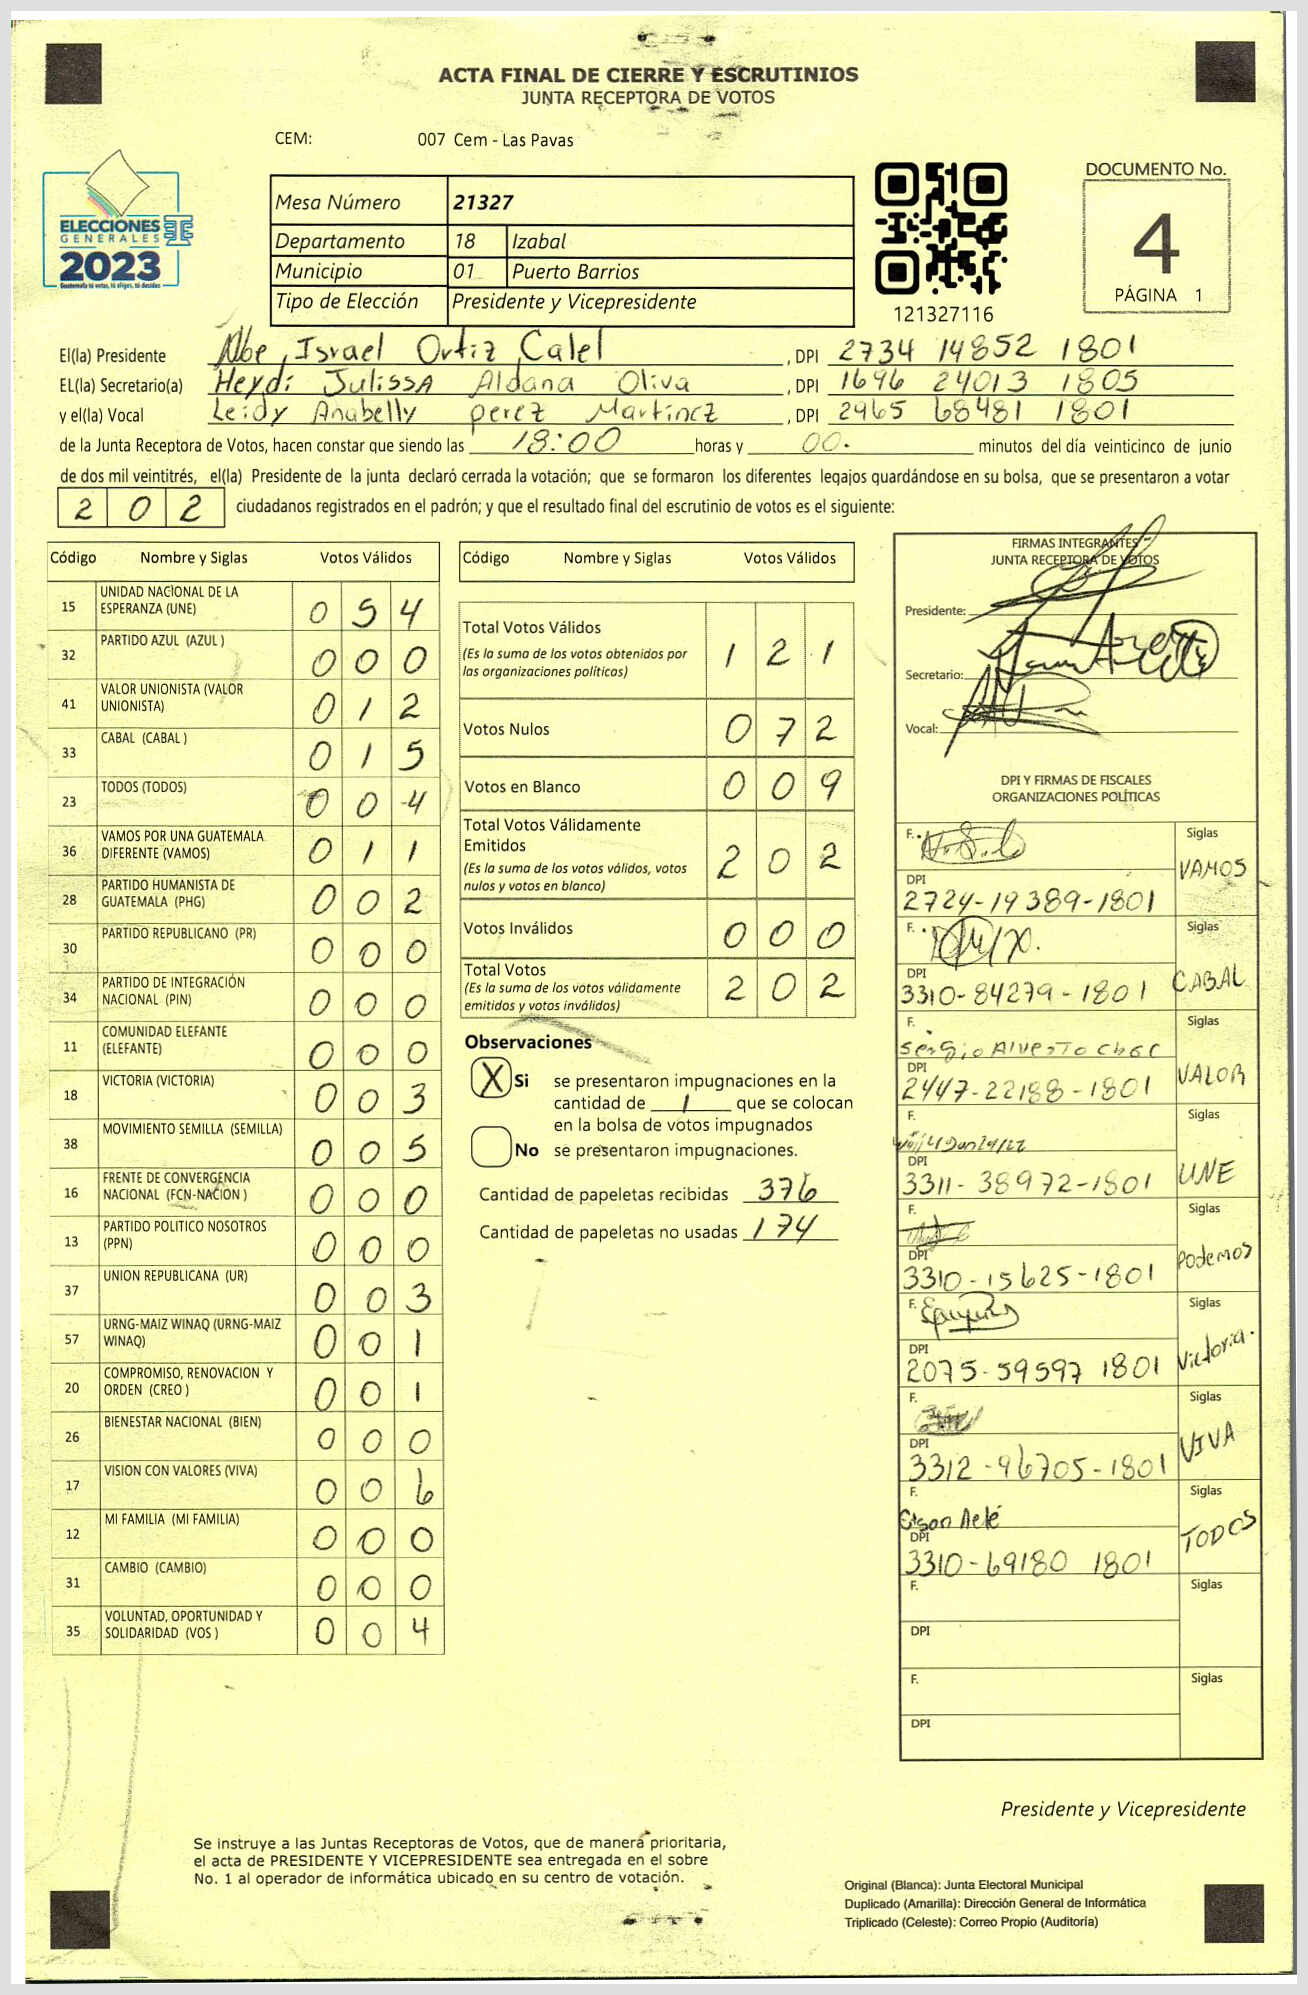 ACTA FINAL DE CIERRE Y ESCRUTINIOS
JUNTA RECEPTORA DE VOTOS
CEM: 007 Cem - Las Pavas
ELECCIONES
GENERALES
2023
Guatemala tú votas, tú eliges, tú decides
Mesa Número 21327
Departamento 18 Izabal
Municipio 01 Puerto Barrios
Tipo de Elección Presidente y Vicepresidente
121327116
DOCUMENTO No.
4
PÁGINA 1
El(la) Presidente Israel Ortiz Calel , DPI 2734 14852 1801
EL(la) Secretario(a) Heydi Julissa Aldana Oliva , DPI 1696 24013 1805
y el(la) Vocal Leidy Anabelly perez Martinez , DPI 2965 68481 1801
de la Junta Receptora de Votos, hacen constar que siendo las 18:00 horas y 00. minutos del día veinticinco de junio
de dos mil veintitrés, el(la) Presidente de la junta declaró cerrada la votación; que se formaron los diferentes legajos guardándose en su bolsa, que se presentaron a votar
2 0 2 ciudadanos registrados en el padrón; y que el resultado final del escrutinio de votos es el siguiente:
Código Nombre y Siglas Votos Válidos
15 UNIDAD NACIONAL DE LA ESPERANZA (UNE) 0 5 4
32 PARTIDO AZUL (AZUL ) 0 0 0
41 VALOR UNIONISTA (VALOR UNIONISTA) 0 1 2
33 CABAL (CABAL ) 0 1 5
23 TODOS (TODOS) 0 0 4
36 VAMOS POR UNA GUATEMALA DIFERENTE (VAMOS) 0 1 1
28 PARTIDO HUMANISTA DE GUATEMALA (PHG) 0 0 2
30 PARTIDO REPUBLICANO (PR) 0 0 0
34 PARTIDO DE INTEGRACIÓN NACIONAL (PIN) 0 0 0
11 COMUNIDAD ELEFANTE (ELEFANTE) 0 0 0
18 VICTORIA (VICTORIA) 0 0 3
38 MOVIMIENTO SEMILLA (SEMILLA) 0 0 5
16 FRENTE DE CONVERGENCIA NACIONAL (FCN-NACION ) 0 0 0
13 PARTIDO POLITICO NOSOTROS (PPN) 0 0 0
37 UNION REPUBLICANA (UR) 0 0 3
57 URNG-MAIZ WINAQ (URNG-MAIZ WINAQ) 0 0 1
20 COMPROMISO, RENOVACION Y ORDEN (CREO ) 0 0 1
26 BIENESTAR NACIONAL (BIEN) 0 0 0
17 VISION CON VALORES (VIVA) 0 0 6
12 MI FAMILIA (MI FAMILIA) 0 0 0
31 CAMBIO (CAMBIO) 0 0 0
35 VOLUNTAD, OPORTUNIDAD Y SOLIDARIDAD (VOS ) 0 0 4
Código Nombre y Siglas Votos Válidos
Total Votos Válidos 1 2 1
(Es la suma de los votos obtenidos por
las organizaciones políticas)
Votos Nulos 0 7 2
Votos en Blanco 0 0 9
Total Votos Válidamente
Emitidos 2 0 2
(Es la suma de los votos válidos, votos
nulos y votos en blanco)
Votos Inválidos 0 0 0
Total Votos 2 0 2
(Es la suma de los votos válidamente
emitidos y votos inválidos)
Observaciones
X Si se presentaron impugnaciones en la
cantidad de 1 que se colocan
en la bolsa de votos impugnados
No se presentaron impugnaciones.
Cantidad de papeletas recibidas 376
Cantidad de papeletas no usadas 174
FIRMAS INTEGRANTES
JUNTA RECEPTORA DE VOTOS
Presidente:
Secretario:
Vocal:
DPI Y FIRMAS DE FISCALES
ORGANIZACIONES POLÍTICAS
F. Siglas
VAMOS
DPI
2724-19389-1801
F. Siglas
DPI
3310-84279-1801 CABAL
F. Siglas
Sergio
DPI
2447-22188-1801 VALOR
F. Siglas
DPI
3311-38972-1801 UNE
F. Siglas
DPI
3310-15625-1801 Podemos
F. Siglas
DPI
2075-59597 1801 Victoria.
F. Siglas
DPI
3312-96705-1801 VIVA
F. Siglas
DPI
3310-69180 1801 TODOS
F. Siglas
DPI
F. Siglas
DPI
Presidente y Vicepresidente
Se instruye a las Juntas Receptoras de Votos, que de manera prioritaria,
el acta de PRESIDENTE Y VICEPRESIDENTE sea entregada en el sobre
No. 1 al operador de informática ubicado en su centro de votación.
Original (Blanca): Junta Electoral Municipal
Duplicado (Amarilla): Dirección General de Informática
Triplicado (Celeste): Correo Propio (Auditoría)